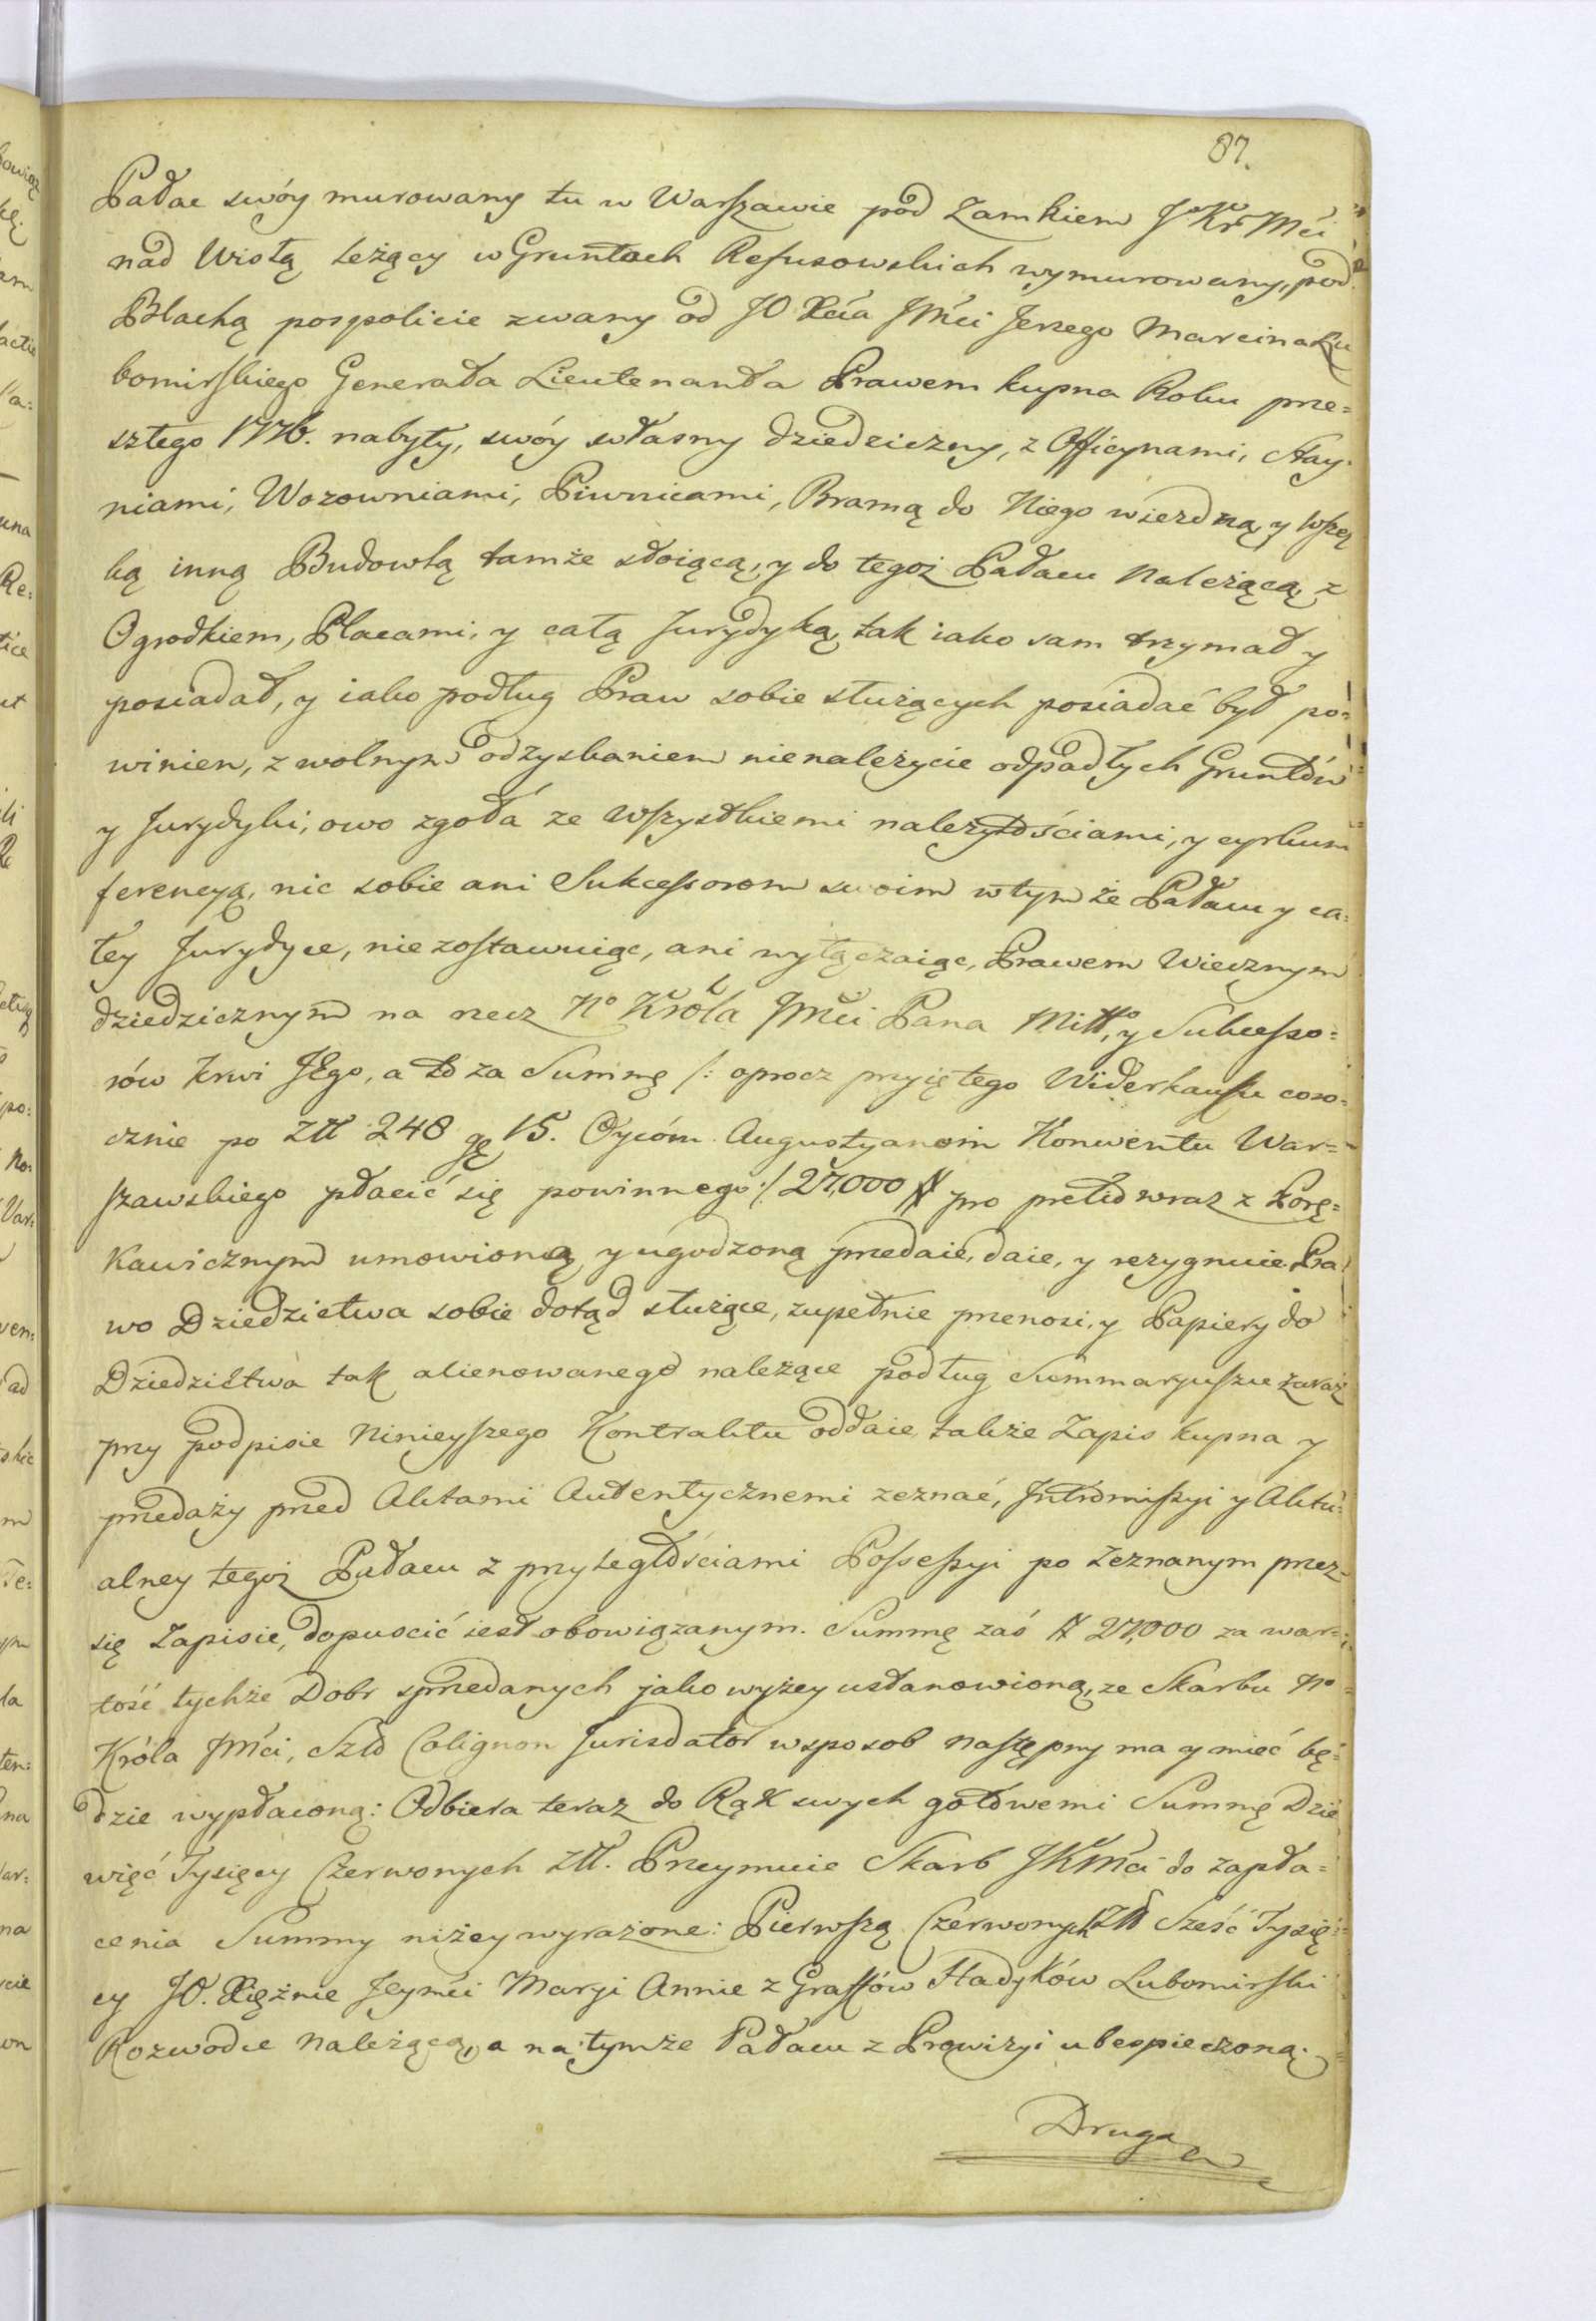 87.
Pałac swóy murowany tu w Warszawie pod Zamkiem J Kr Mći
nad Wisłą leżący w Gruntach Refusowskich wymurowany, pod
Blachą pospolicie zwany od JO Xcia JMci Jerzego Marcina Lu
bomirskiego Generała Lieutenanta Prawem kupna Roku prze=
szłego 1776. nabyty, swóy własny dziedziczny, z Officynami, Stay-
niami, Wozowniami, Piwnicami, Bramą do Niego wiezdną, y wszel
ką inną Budowlą tamże stoiącą, y do tegoż Pałacu Należącą z
Ogrodkiem, Placami, y całą Jurydyką, tak iako sam trzymał y
posiadał, y iako podług Praw sobie służących posiadać był po=
winien, z wolnym odzyskaniem nienależycie odpadłych Gruntów
y Jurydyki, owo zgoła ze wszystkiemi należytościami, y cyrkum
ferencyą, nic sobie ani Sukcessorom swoim w tym że Pałacu y ca=
łey Jurydyce, nie zostawuiąc, ani wyłączaiąc, Prawem Wiecznym
dziedzicznym na rzecz No Króla JMći Pana Mitto, y Sukcesso=
rów krwi JEgo, a to za Summę /: oprocz przyiętego Widerkaufu coro=
cznie po Ztt 248 gę 15. Oycóm Augustyanoim Konwentu War=
szawskiego płacić się powinnego :/ 27,000 # pro pretio wraz z Porę=
kawicznym umowioną, y ugodzoną przedaie, daie, y rezygnuie. Pra
wo Dziedzictwa sobie dotąd służące, zupełnie przenosi, y Papiery do
Dziedzictwa tak alienowanego należące podług Summaryuszu zaraz
przy podpisie Ninieyszego Kontraktu oddaie, także Zapis kupna y
przedaży przed Aktami Autentycznemi zeznać, Intromissyi y Aktu=
alney tegoż Pałacu z przyległościami Possessyi po zeznanym przez
się Zapisie, dopuscić iest obowiązanym. Summę zaś # 27,000 za war=
tość tychże Dobr sprzedanych jako wyżey ustanowioną, ze Skarbu No
Króla JMći, Szto Colignon Jurisdator w sposob następny ma y mieć bę=
dzie wypłaconą: Odbiera teraz do Rąk swych gotowemi Summę Dzie
więć Tysięcy Czerwonych Ztt. Przeymuie Skarb JKMći do zapła=
cenia Summy niżey wyrażone: Pierwszą Czerwonych Ztt Sześć Tysię=
cy JO. Xiężnie Jeymći Maryi Annie z Graffów Hadyków Lubomirski
Rozwodce Należącą, a na tymże Pałacu z Prowizyi ubespieczoną.
Druga